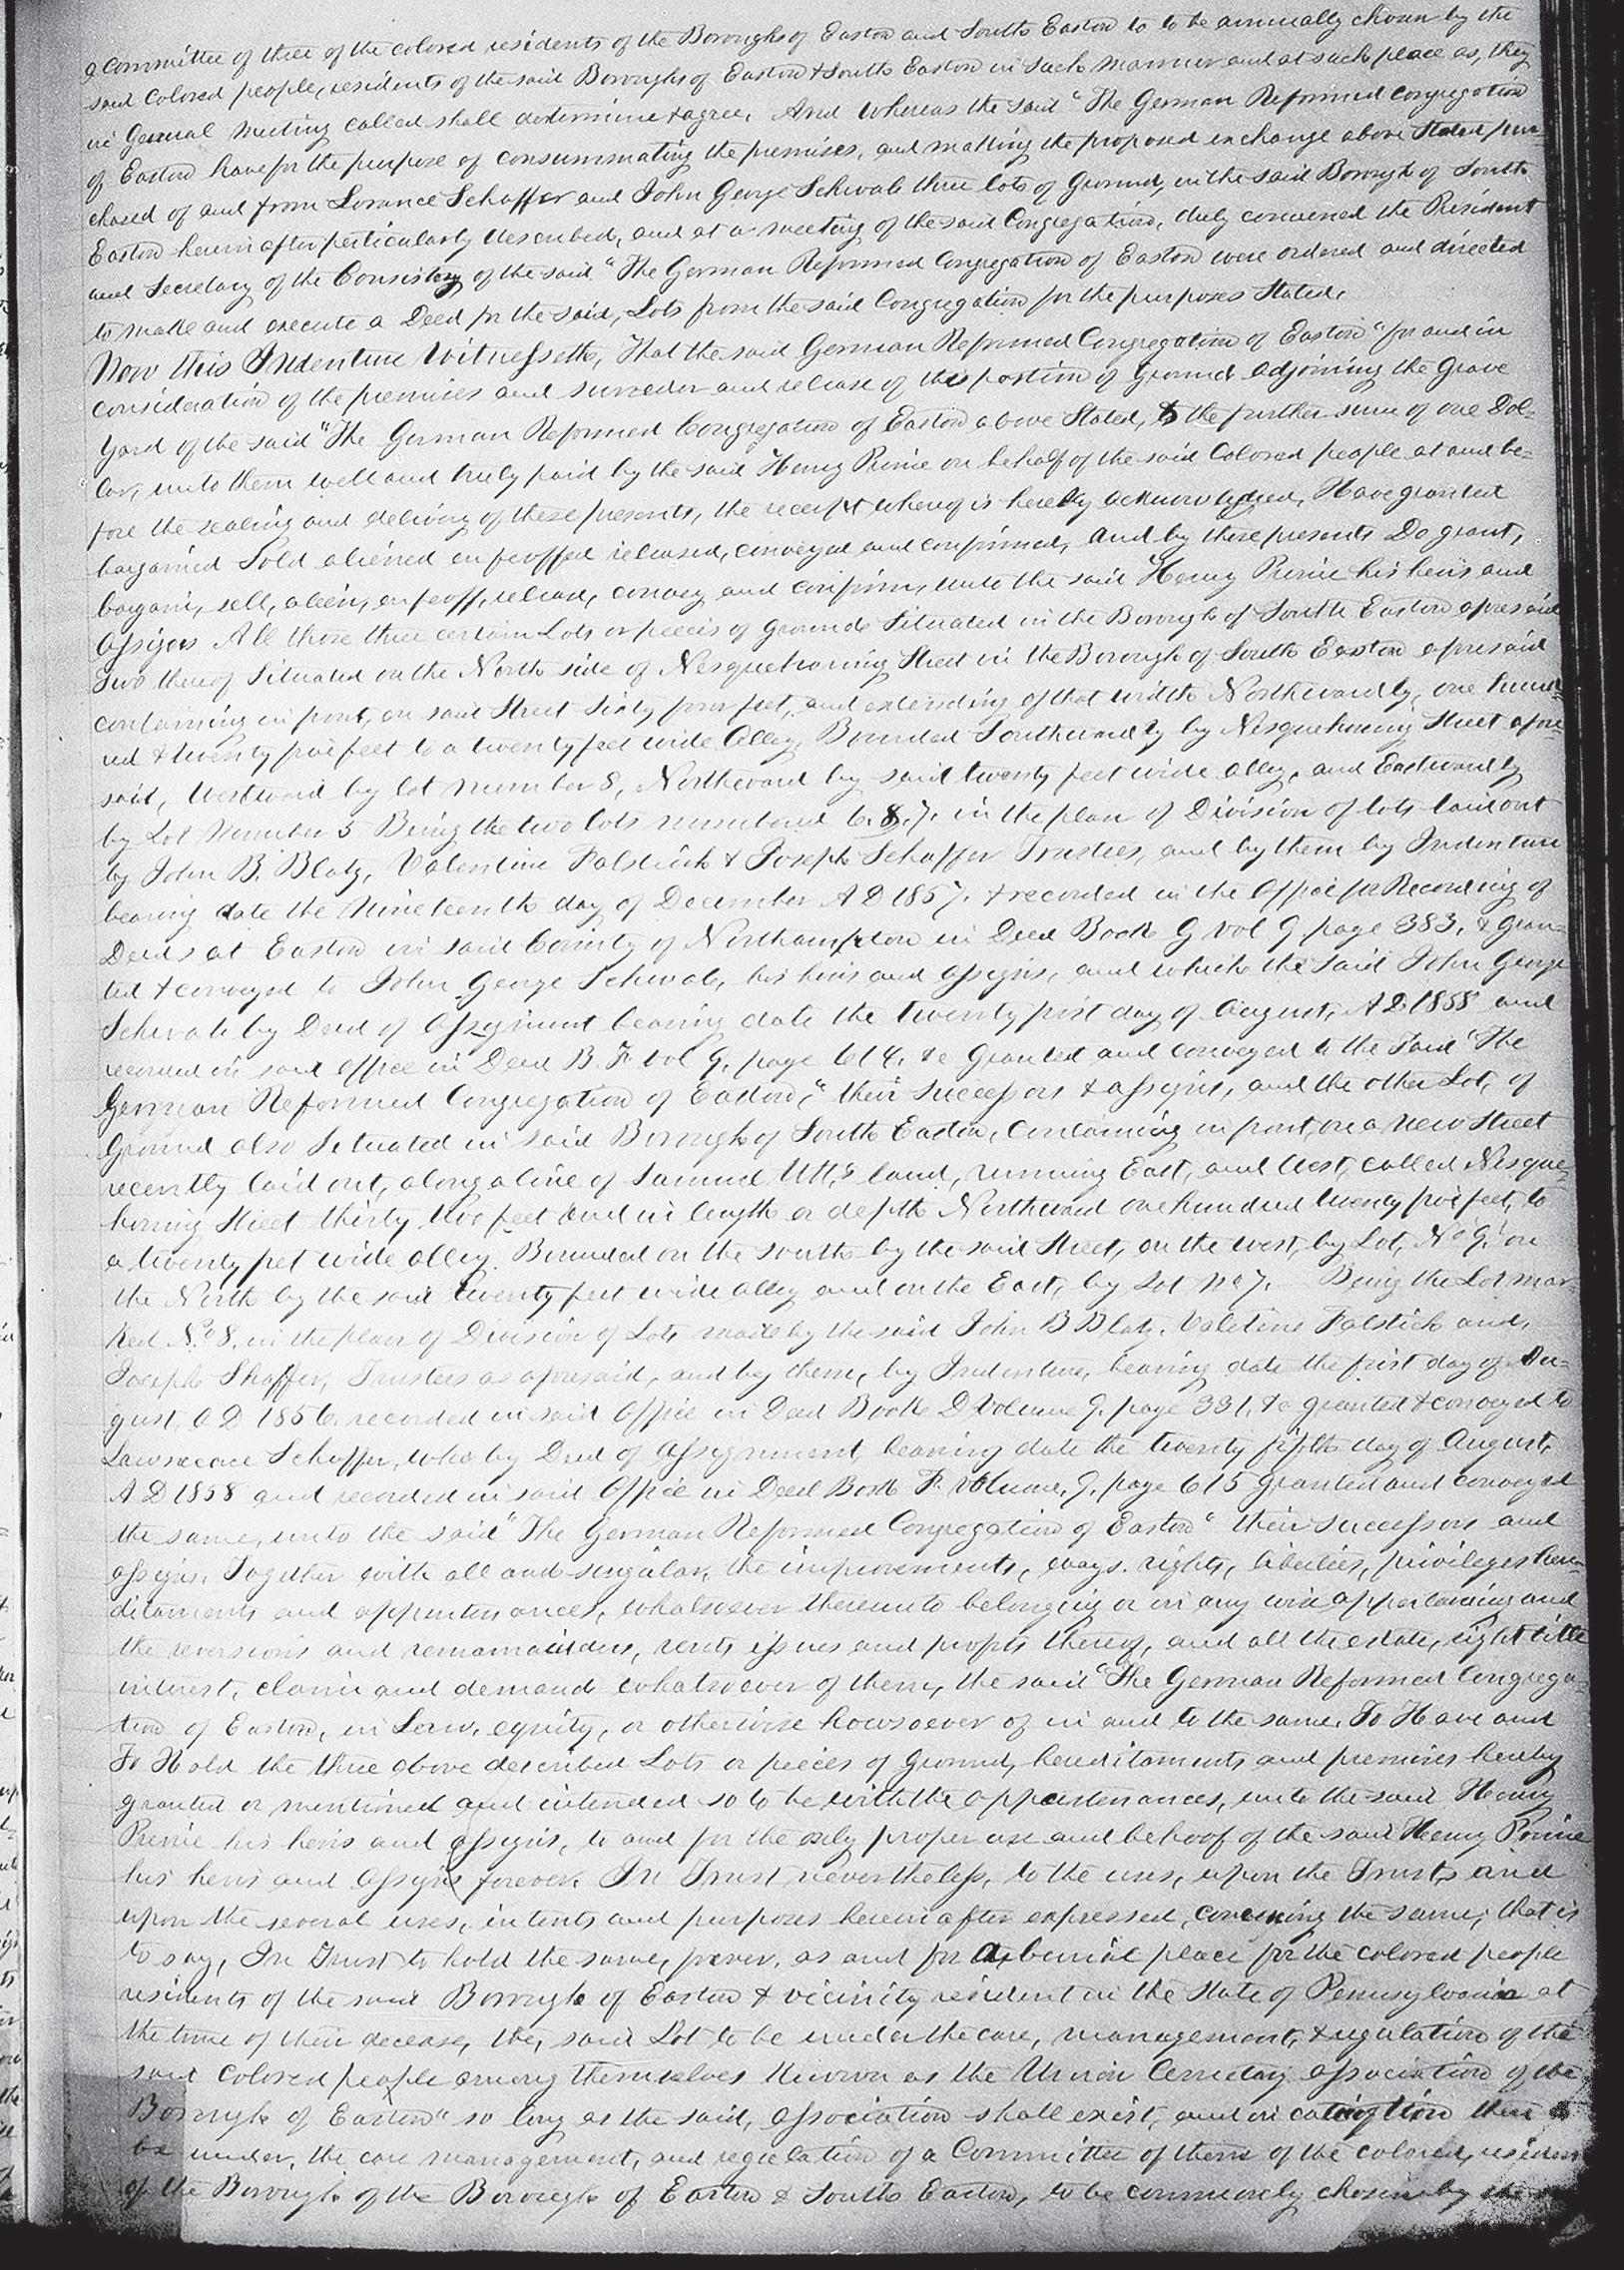 a Committee of three of the colored residents of the Boroughs of Easton and South Easton to to be annually chosen by the
said Colored people, residents of the said Boroughs of Easton & South Easton in such manner and at such place as, they
in General Meeting called shall determine & agree. And whereas the said "The German Reformed Congregation
of Easton have for the purpose of consummating the premises, and making the proposed exchange above Stated pur-
chased of and from Lorance Schaffer and John George Schwab three lots of Ground, in the said Borough of South
Easton herein after perticularly described, and at a meeting of the said Congregation, duly convened the President
and Secretary of the Consistory of the said "The German Reformed Congregation of Easton were ordered and directed
to make and execute a Deed for the said, Lots from the said Congregation for the purposes Stated.
Now this Indenture Witnesseth, That the said German Reformed Congregation of Easton" for and in
consideration of the premises and surrender and release of the portion of ground adjoining the Grave
Yard of the said "The German Reformed Congregation of Easton above Stated, & the further sum of one Dol-
lar, unto them well and truly paid by the said Henry Prime on behalf of the said Colored people at and be-
fore the sealing and delivery of these presents, the receipt whereof is hereby acknowledged, Have granted
bargained Sold aliened enfeoffed released, conveyed and confirmed, and by these presents Do grant,
bargain, sell, alien, enfeoff, release, convey and confirm, unto the said Henry Prime his heirs and
Assigns All those three certain Lots or pieces of ground Situated in the Borough of South Easton aforesaid
Two thereof Situated on the North side of Nesquehoning Street in the Borough of South Easton aforesaid
containing in front, on said Street Sixty four feet, and extending of that width Northwardly, one hund-
red & twenty five feet to a twenty feet wide Alley, Bounded Southwardly by Nesquehoning Street afore-
said, Westward by lot number 8, Northward by said twenty feet wide alley, and Eastwardly
by Lot Number 5 Being the two lots numbered 6. & 7. in the plan of Division of lots laid out
by John B. Blatz, Valentine Falstick & Joseph Schaffer Trustees, and by them by Indenture
bearing date the Nineteenth day of December A D 1857. & recorded in the Office for Recording of
Deeds at Easton in said County of Northampton in Deed Book G vol 9 page 383, & gran-
ted & conveyed to John George Schwab, his heirs and assigns, and which the said John George
Schwab by Deed of Assignment bearing date the twenty first day of August, A D 1858 and
recorded in said office in Deed B. F vol 9, page 614. &c Granted and conveyed to the Said "The
German Reformed Congregation of Easton," their successors & assigns, and the other Lot, of
Ground also Situated in said Borough of South Easton, containing in front, on a New Street
recently laid out, along a line of Samuel Utt,s land, running East, and West, called Nesque-
honing Street thirty two feet and in length or depth Northward one hundred twenty five feet, to
a twenty feet wide alley. Bounded on the South by the said Street, on the west, by Lot, No 9, on
the North by the said twenty feet wide alley and on the East, by Lot No 7. Being the Lot mar-
ked No 8. in the plan of Division of Lots made by the said John B Blatz. Valetine Falstick and,
Joseph Shaffer, Trustees as aforesaid, and by them, by Indenture, bearing date the first day of Au-
gust, A D 1856 recorded in said Office in Deed Book D Volume 9. page 331. &c granted & conveyed to
Lawrence Schaffer, who by Deed of Assignment, bearing date the twenty fifth day of August,
A D 1858 and recorded in said Office in Deed Book F. Volume, 9, page 615 granted and conveyed
the same, unto the said "The German Reformed Congregation of Easton" their successors and
assigns. Together with all and singular, the improvements, ways. rights, liberties, privileges here-
ditaments and appurtenances, whatsoever thereunto belonging or in any wise appertaining and
the reversions and remainders, rents issues and profits thereof, and all the estate, right title
interest, claim and demand whatsoever of them, the said "The German Reformed Congrega-
tion of Easton, in Law, equity, or otherwise howsoever of in and to the same. To Have and
To Hold the three above described Lots or pieces of Ground, hereditaments and premises hereby
granted or mentioned and intended so to be with the appurtenances, unto the said Henry
Prime his heirs and assigns, to and for the only proper use and behoof of the said Henry Prime
his heirs and Assigns forever. In Trust nevertheless, to the uses, upon the Trusts and
upon the several uses, intents and purposes herein after expressed, concerning the same, that is
to say, In Trust to hold the same, forever, as and for a burial place for the colored people
residents of the said Borough of Easton & vicinity resident in the State of Pennsylvania at
the time of their decease, the, said Lot to be under the care, management, & regulation of the
said Colored people among themselves known as the Union Cemetary association of the
Borough of Easton" so long as the said, association shall exist, and on then to
be under, the care management, and regulation of a Committee of three of the colored, residents
of the Borough of the Borough of Easton & South Easton, to be chosen by the